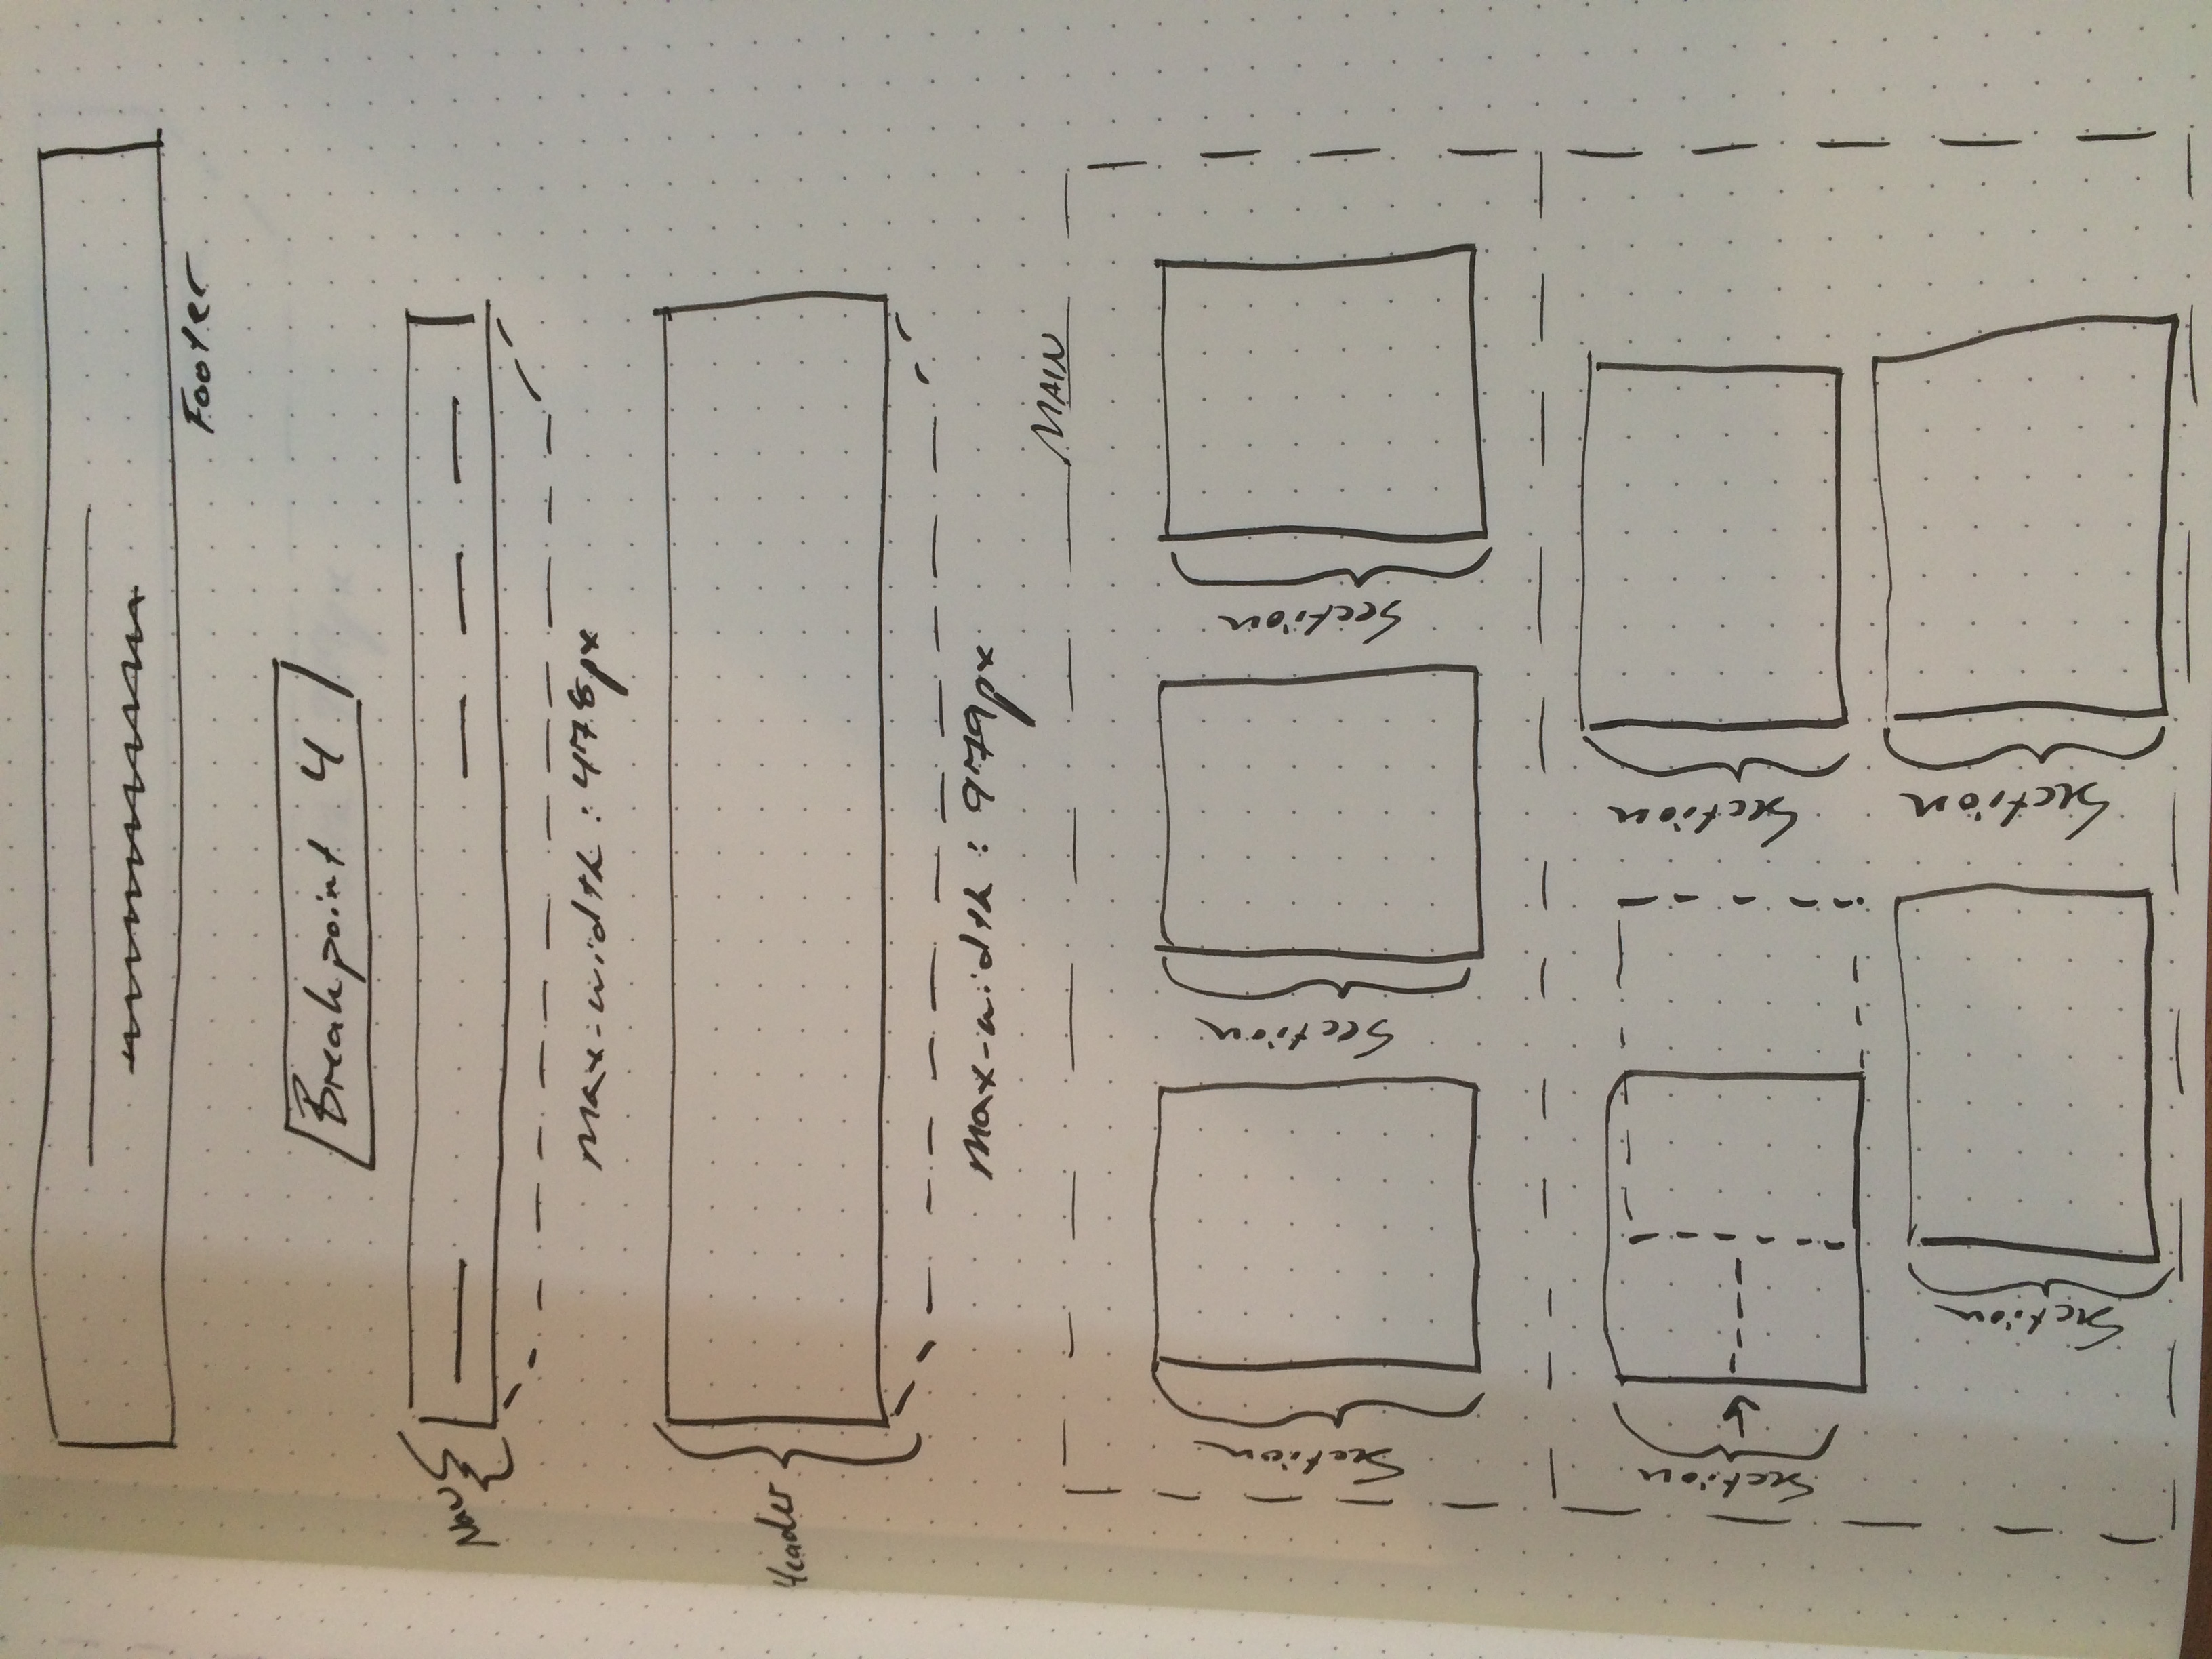 Footer
Breakpoint 4
Nav
max-width: 478px
Header
max-width: 979px
MAIN
Section
Section
Section
Section
Section
Section
Section